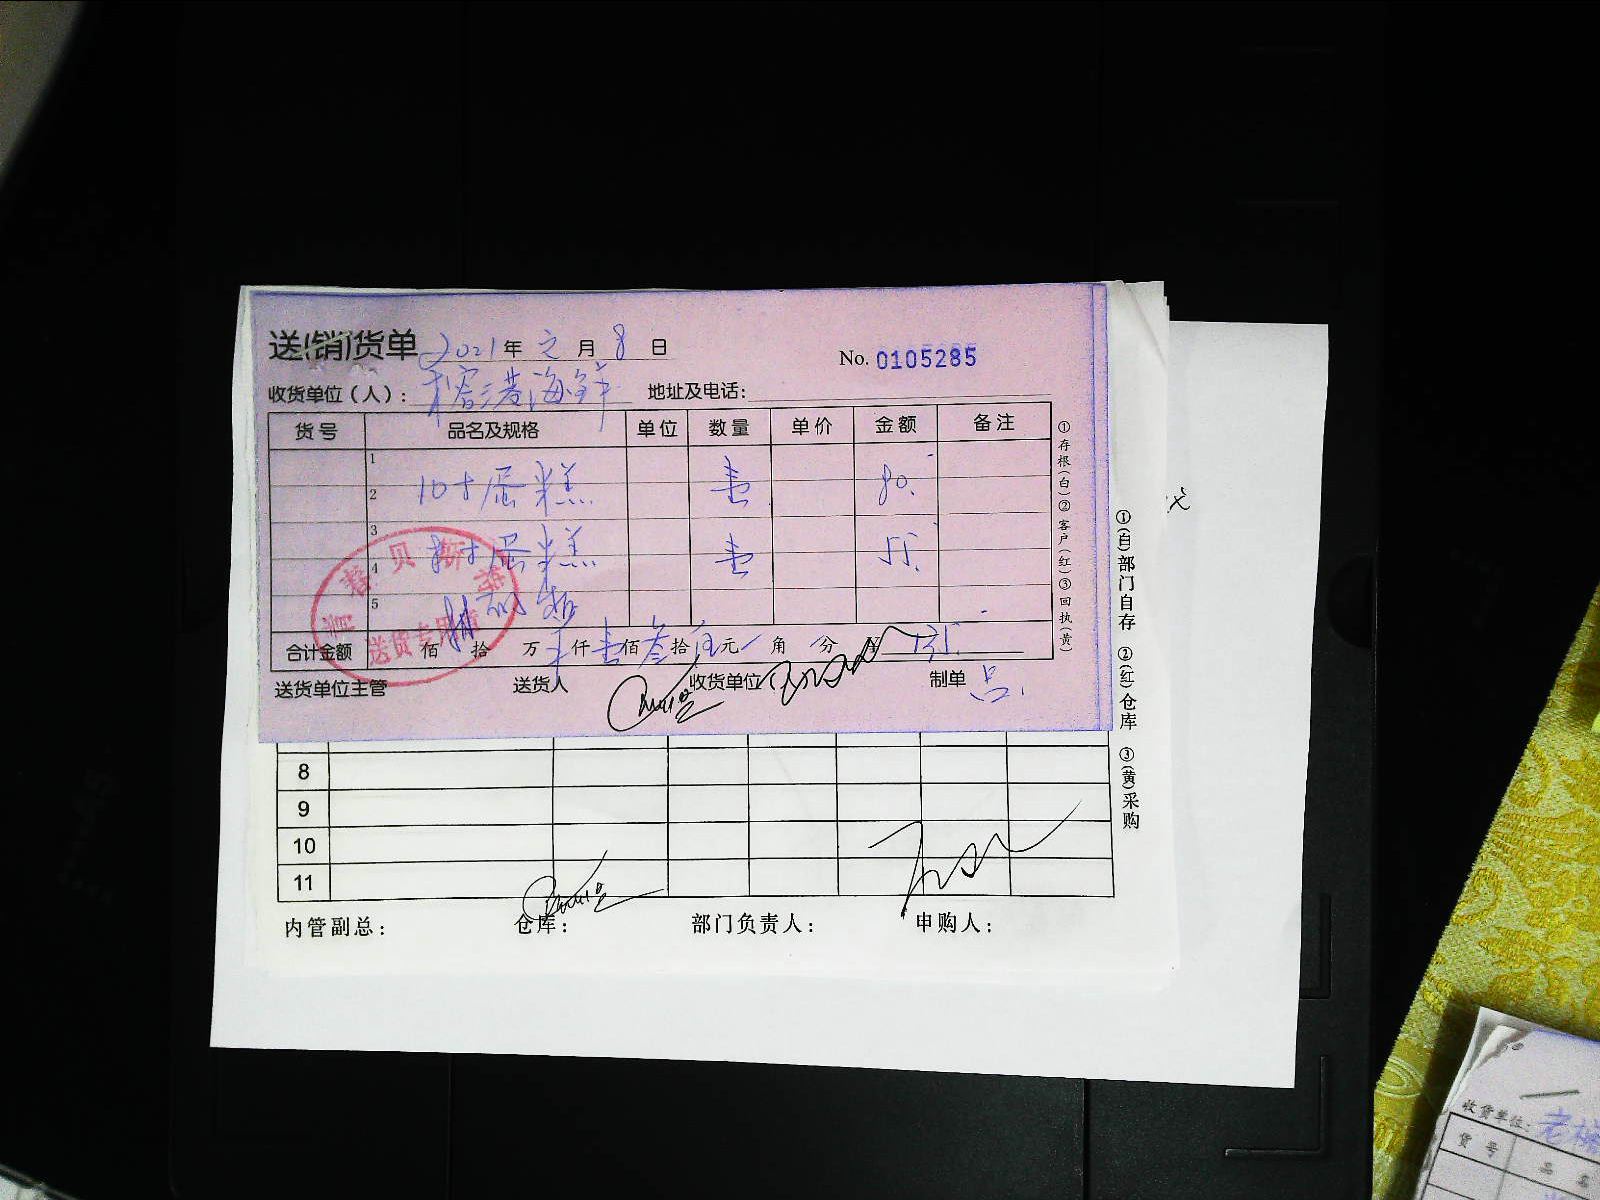 送(销)货单 2021年 元 月 8 日 No. 0105285
收货单位(人): 榕港海鲜 地址及电话:
货号 品名及规格 单位 数量 单价 金额 备注
1
2 10寸蛋糕 壹 80.
3
4 寸蛋糕 壹 55.
5
合计金额 佰 拾 万 仟壹佰叁拾伍元 角 分 135.
送货单位主管 送货人 收货单位 制单
送货专用章
①存根(白)②客户(红)③回执(黄)
8
9
10
11
内管副总: 仓库: 部门负责人: 申购人:
①(白)部门自存 ②(红)仓库 ③(黄)采购
收货单位:
货号 品名